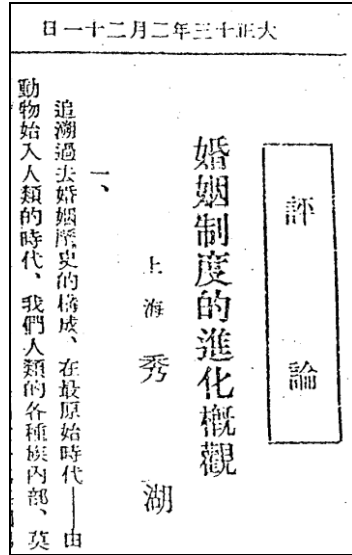 大正十三年二月二十一日
評論
婚姻制度的進化槪觀
上海 秀湖
一、
追溯過去婚姻歷史的構成、在最原始時代——由
動物始入人類的時代、我們人類的各種族內部、莫